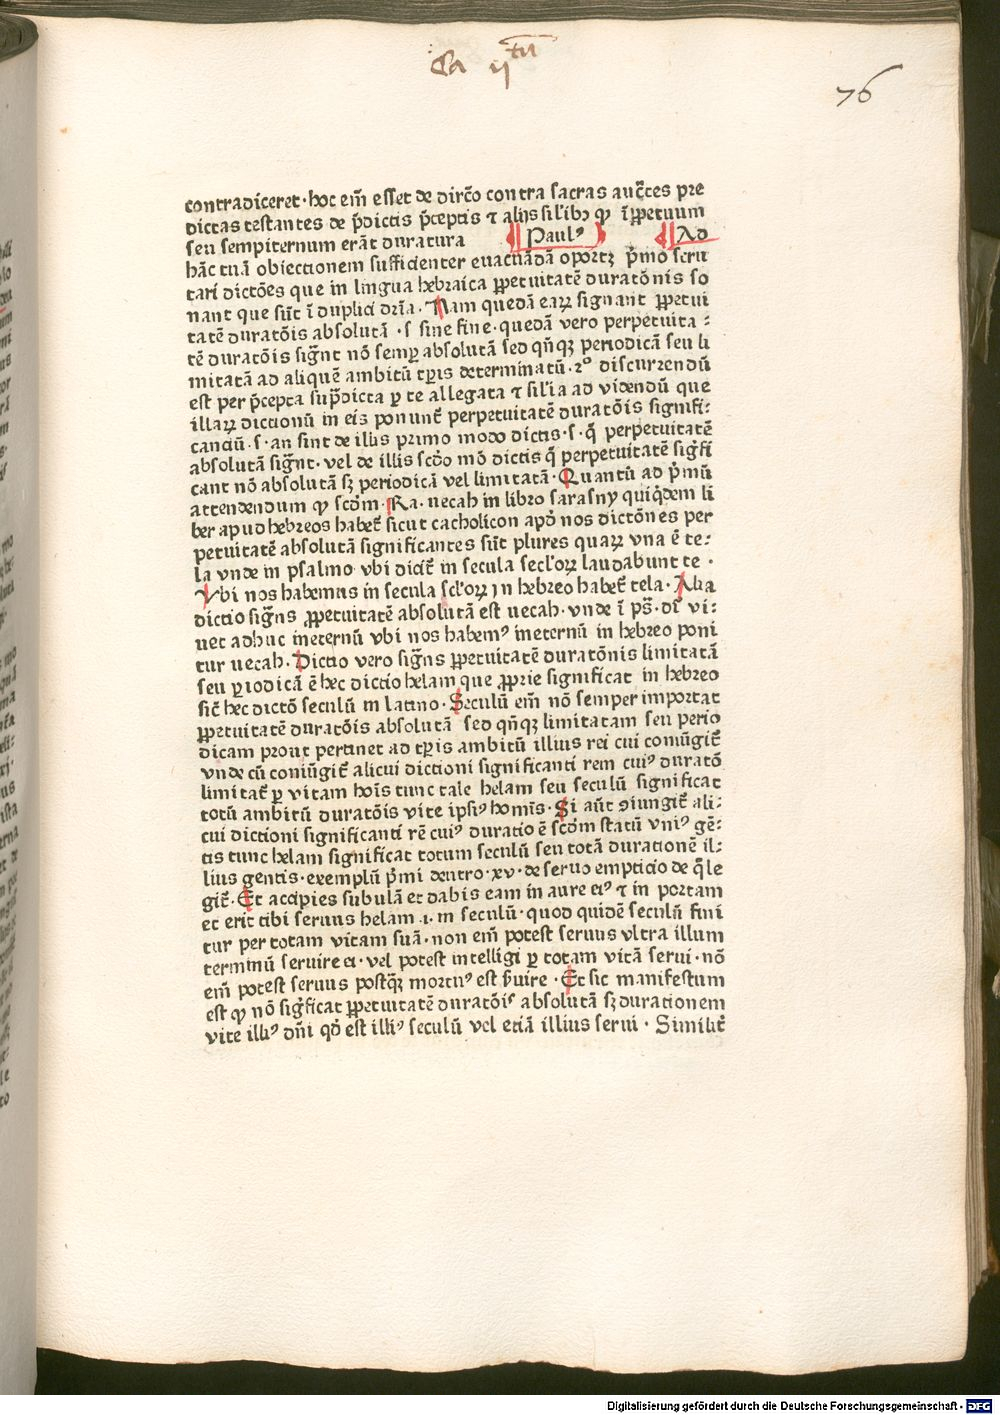 Ca ij tu
76
contradiceret · hoc em̄ esset de dirc̄o contra sacras auc̄tes pre
dictas testantes de p̄dictis p̄ceptis ⁊ alijs sil'ibꝫ ꝙ īꝑpetuum
seu sempiternum erāt duratura Paulꝰ Ad
hāc tuā obiectionem sufficienter euacuādā oportꝫ p̄mo scru
tari dictōes que in lingua hebraica ꝑpetuitatē duratōnis so
nant que sūt ī duplici dr̄ia · Nam quedā eaꝝ signant ꝑpetui
tatē duratōis absolutā · s̄ sine fine · quedā vero perpetuita :
tē duratōis sigñt nō semꝑ absolutā sed qn̄qꝫ periodicā seu li
mitatā ad aliquē ambitū tꝑis determinatū · 2° discurrendū
est per p̄cepta sup̄dicta ꝑ te allegata ⁊ sil'ia ad videndū que
illaꝝ dictionū in eis ponunt̄ perpetuitatē duratōis signifi:
canciū · s · an sint de illis primo modo dictis · s · q̄ perpetuitatē
absolutā sigñt · vel de illis scdo mō dictis q̄ perpetuitatē sig̃fi
cant nō absolutā sꝫ periodicā vel limitatā · Quantū ad p̄mū
attendendum ꝙ scdm · Ra · uecah in libro sarasny quiq̇dem li
ber apud hebreos habet̄ sicut catholicon apd̄ nos dictōnes per
petuitatē absolutā significantes sūt plures quaꝝ vna ē te :
la vnde in psalmo vbi dicit̄ in secula secl'oꝝ laudabunt te ·
Vbi nos habemus in secula scl'oꝝ in hebreo habet̄ tela · Alia
dictio sigñs ꝑpetuitatē absolutā est uecah · vnde ī ps̄ · dr̄ vi:
uet adhuc ineternū vbi nos habemꝰ ineternū in hebreo poni
tur uecah · Dictio vero sigñs ꝑpetuitatē duratōnis limitatā
seu ꝑiodicā ē hec dictio helam que ꝓprie significat in hebreo
sic̄ hec dictō seculū in latino · Seculū em̄ nō semper importat
ꝑpetuitatē duratōis absolutā sed qn̄qꝫ limitatam seu perio
dicam prout pertinet ad tꝑis ambitū illius rei cui coniūgit̄
vnde cū coniūgit̄ alicui dictioni significanti rem cuiꝰ duratō
limitat̄ ꝑ vitam hoīs tunc tale helam seu seculū significat
totū ambitū duratōis vite ipsiꝰ homīs · Si aūt ꝯiungit̄ ali:
cui dictioni significanti rē cuiꝰ duratio ē scdm statū vniꝰ gē:
tis tunc helam significat totum seculū seu totā durationē il:
lius gentis · exemplū p̄mi deutro · xv · de seruo empticio de q̇ le
git̄ · Et accipies subulā et dabis eam in aure eiꝰ ⁊ in portam
et erit tibi seruus helam .i. in seculū · quod quidē seculū fini
tur per totam vitam suā · non em̄ potest seruus vltra illum
terminū seruire ei · vel potest intelligi ꝑ totam vitā serui · nō
em̄ potest seruus postq̄ꝫ mortuꝰ est s̄uire · Et sic manifestum
est ꝙ nō sig̃ficat ꝑpetuitatē duratōis absolutā sꝫ durationem
vite illiꝰ dn̄i qd̄ est illiꝰ seculū vel etiā illius serui · Similit̄
Digitalisierung gefördert durch die Deutsche Forschungsgemeinschaft - DFG